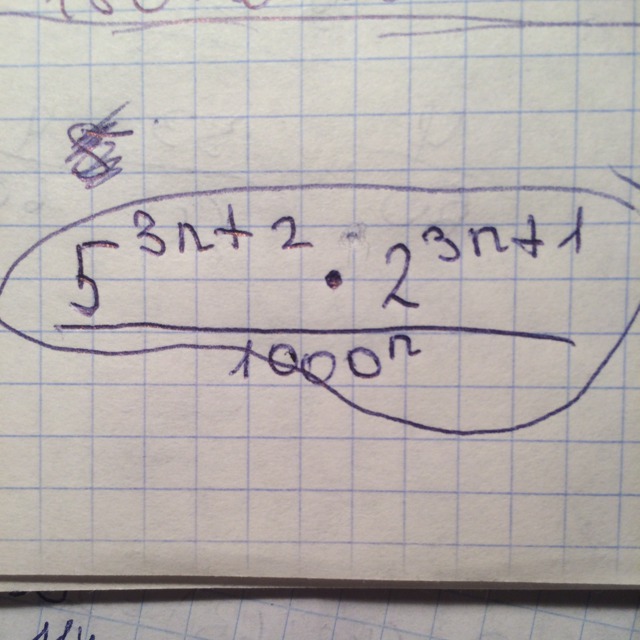 5^{3n+2} · 2^{3n+1}
1000^n